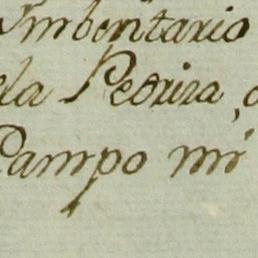 Imbentario
ela Pedriza,
Campo mi